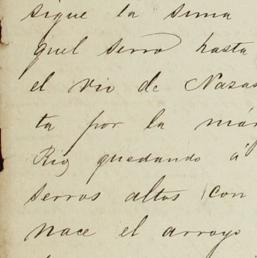 sigue la sima
quel serro hasta
el rio de Nazas
ta por la már
Rio quedando á
serros altos (con
nace el arroyo